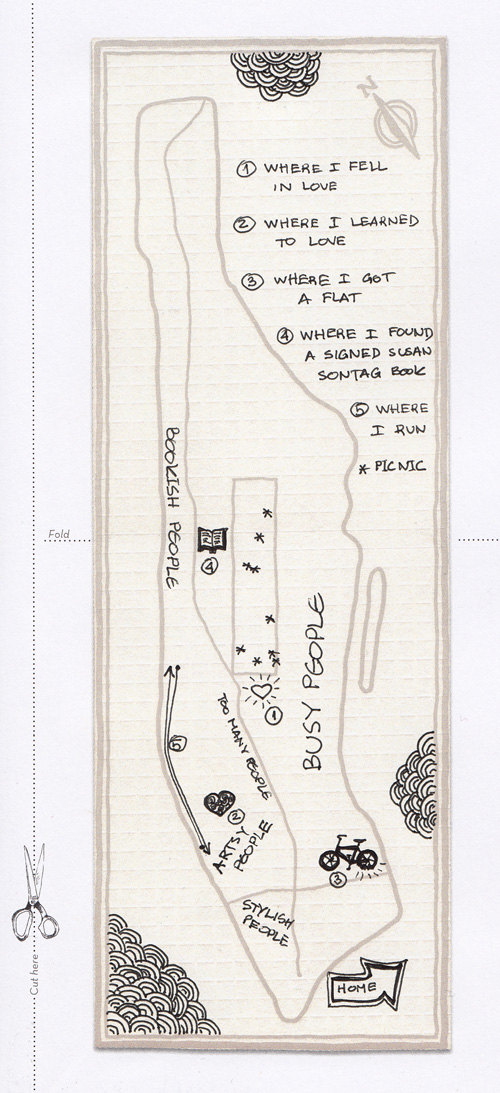 N
① WHERE I FELL
IN LOVE
② WHERE I LEARNED
TO LOVE
③ WHERE I GOT
A FLAT
④ WHERE I FOUND
A SIGNED SUSAN
SONTAG BOOK
⑤ WHERE
I RUN
* PICNIC
BOOKISH PEOPLE
Fold
④
BUSY PEOPLE
①
TOO MANY PEOPLE
⑤
②
ARTSY
PEOPLE
③
STYLISH
PEOPLE
HOME
Cut here